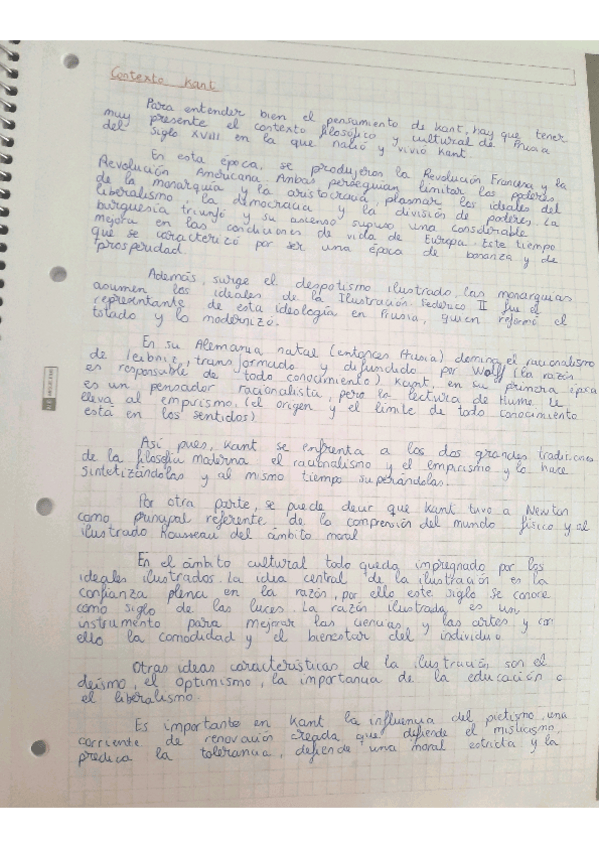 Contexto Kant
Para entender bien el pensamiento de Kant, hay que tener
muy presente el contexto filosófico y cultural de Prusia
del Siglo XVIII en la que nació y vivió Kant.
En esta época, se produjeron la Revolución Francesa y la
Revolución Americana. Ambas perseguían limitar los poderes
de la monarquía y la aristocracia, plasmar los ideales del
liberalismo, la democracia y la división de poderes. La
burguesía triunfó y su ascenso supuso una considerable
mejora en las condiciones de vida de Europa. Este tiempo
que se caracterizó por ser una época de bonanza y de
prosperidad.
Además, surge el despotismo ilustrado, las monarquías
asumen los ideales de la Ilustración. Federico II fue el
representante de esta ideología en Prusia, quien reformó el
estado y lo modernizó.
En su Alemania natal (entonces Prusia) domina el racionalismo
de Leibniz, transformado y difundido por Wolff (la razón
es responsable de todo conocimiento) Kant, en su primera época
es un pensador racionalista, pero la lectura de Hume le
lleva al empirismo. (el origen y el límite de todo conocimiento
está en los sentidos)
Así pues, Kant se enfrenta a los dos grandes tradiciones
de la filosofía moderna el racionalismo y el empirismo y lo hace
sintetizándolas y al mismo tiempo superándolas.
Por otra parte, se puede decir que Kant tuvo a Newton
como principal referente de la comprensión del mundo físico y al
ilustrado Rousseau del ámbito moral
En el ámbito cultural todo queda impregnado por los
ideales ilustrados. La idea central de la ilustración es la
confianza plena en la razón, por ello este siglo se conoce
como siglo de las luces. La razón ilustrada es un
instrumento para mejorar las ciencias y las artes y con
ello la comodidad y el bienestar del individuo.
Otras ideas características de la ilustración son el
deísmo, el optimismo, la importancia de la educación o
el liberalismo.
Es importante en Kant la influencia del pietismo, una
corriente de renovación creada que defiende el misticismo,
predica la tolerancia, defiende una moral estricta y la